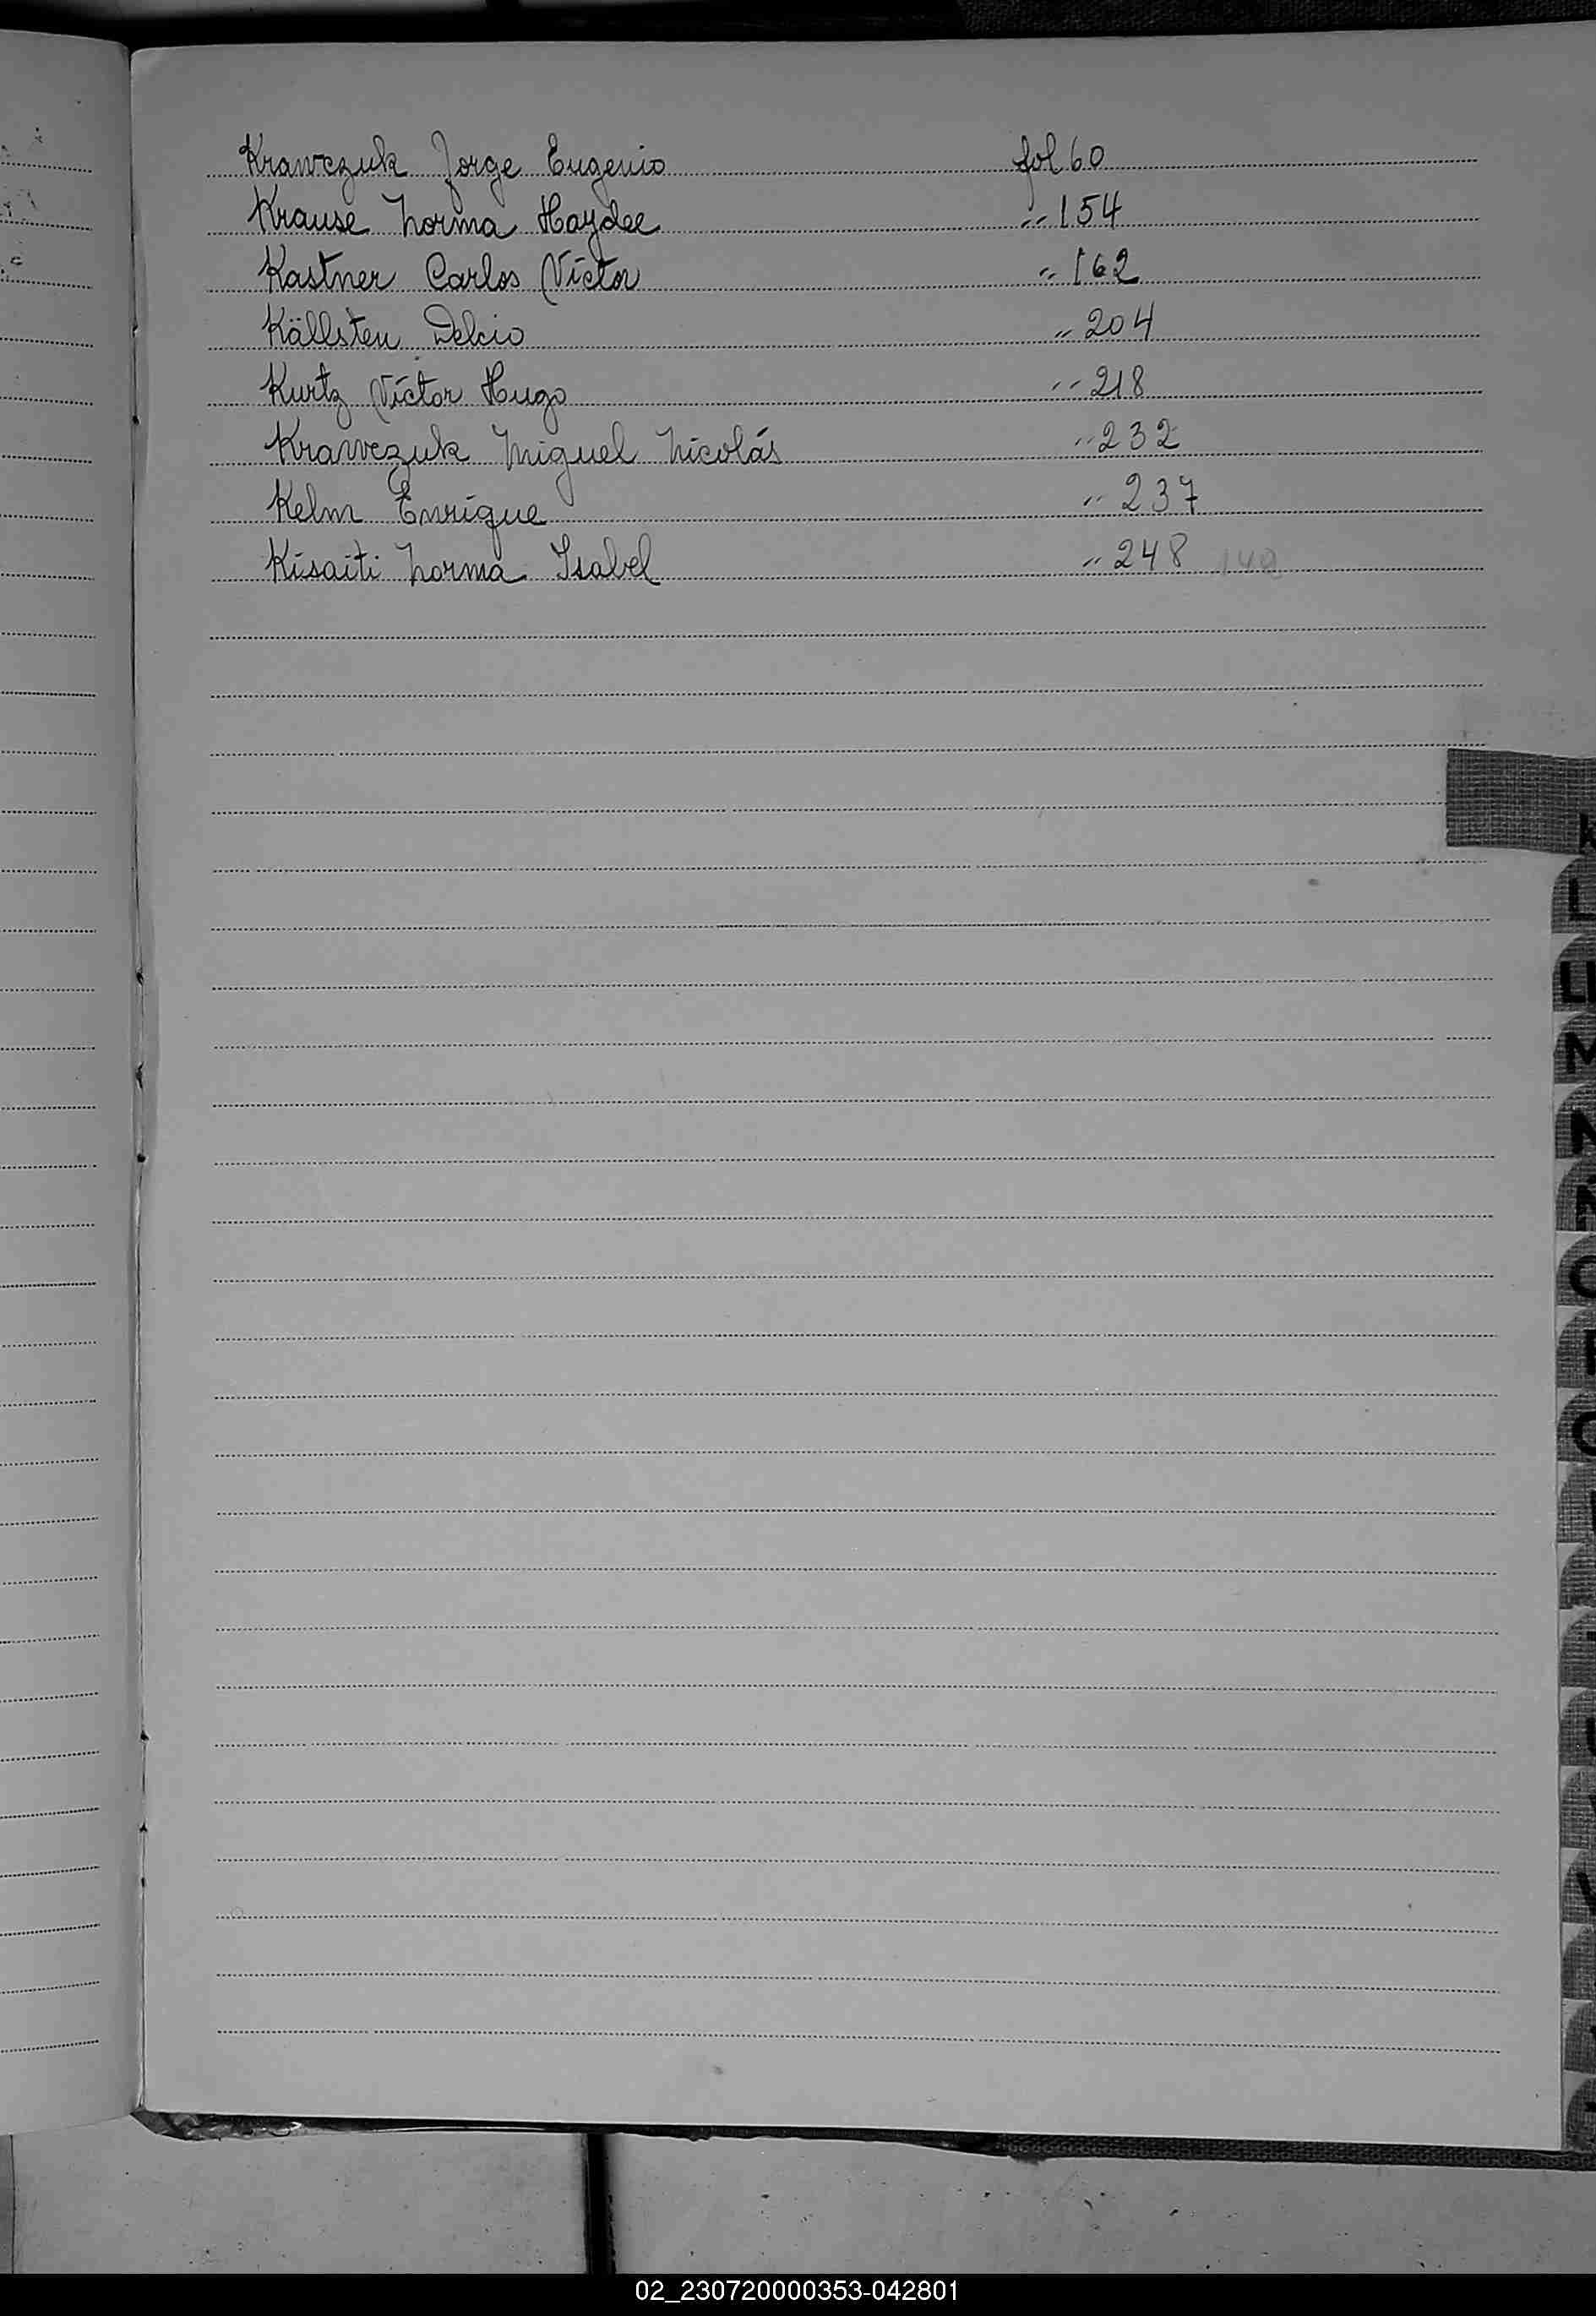 Krawczuk Jorge Eugenio fol 60
Krause Norma Haydee " 154
Kastner Carlos Víctor " 162
Källsten Delcio " 204
Kurtz Víctor Hugo " 218
Krawczuk Miguel Nicolás " 232
Kelm Enrique " 237
Kisaiti Norma Isabel " 248
K
L
LL
M
N
Ñ
O
02_230720000353-042801